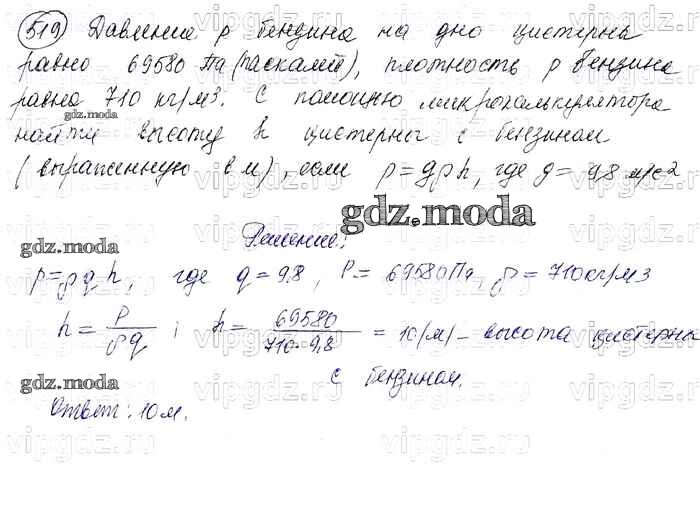 519) Давление p бензина на дно цистерны
равно 69580 Па (паскалей), плотность ρ бензина
равна 710 кг/м3. С помощью микрокалькулятора
gdz.moda
найти высоту h цистерны с бензином
(выраженную в м), если p=gρh, где g= 9,8 м/с2
gdz.moda
Решение:
gdz.moda
p=ρgh, где g=9,8, P= 69580Па, ρ=710кг/м3
h= P/ρg ; h= 69580/710·9,8 = 10(м)– высота цистерны
с бензином.
gdz.moda
Ответ: 10м.
vipgdz.com